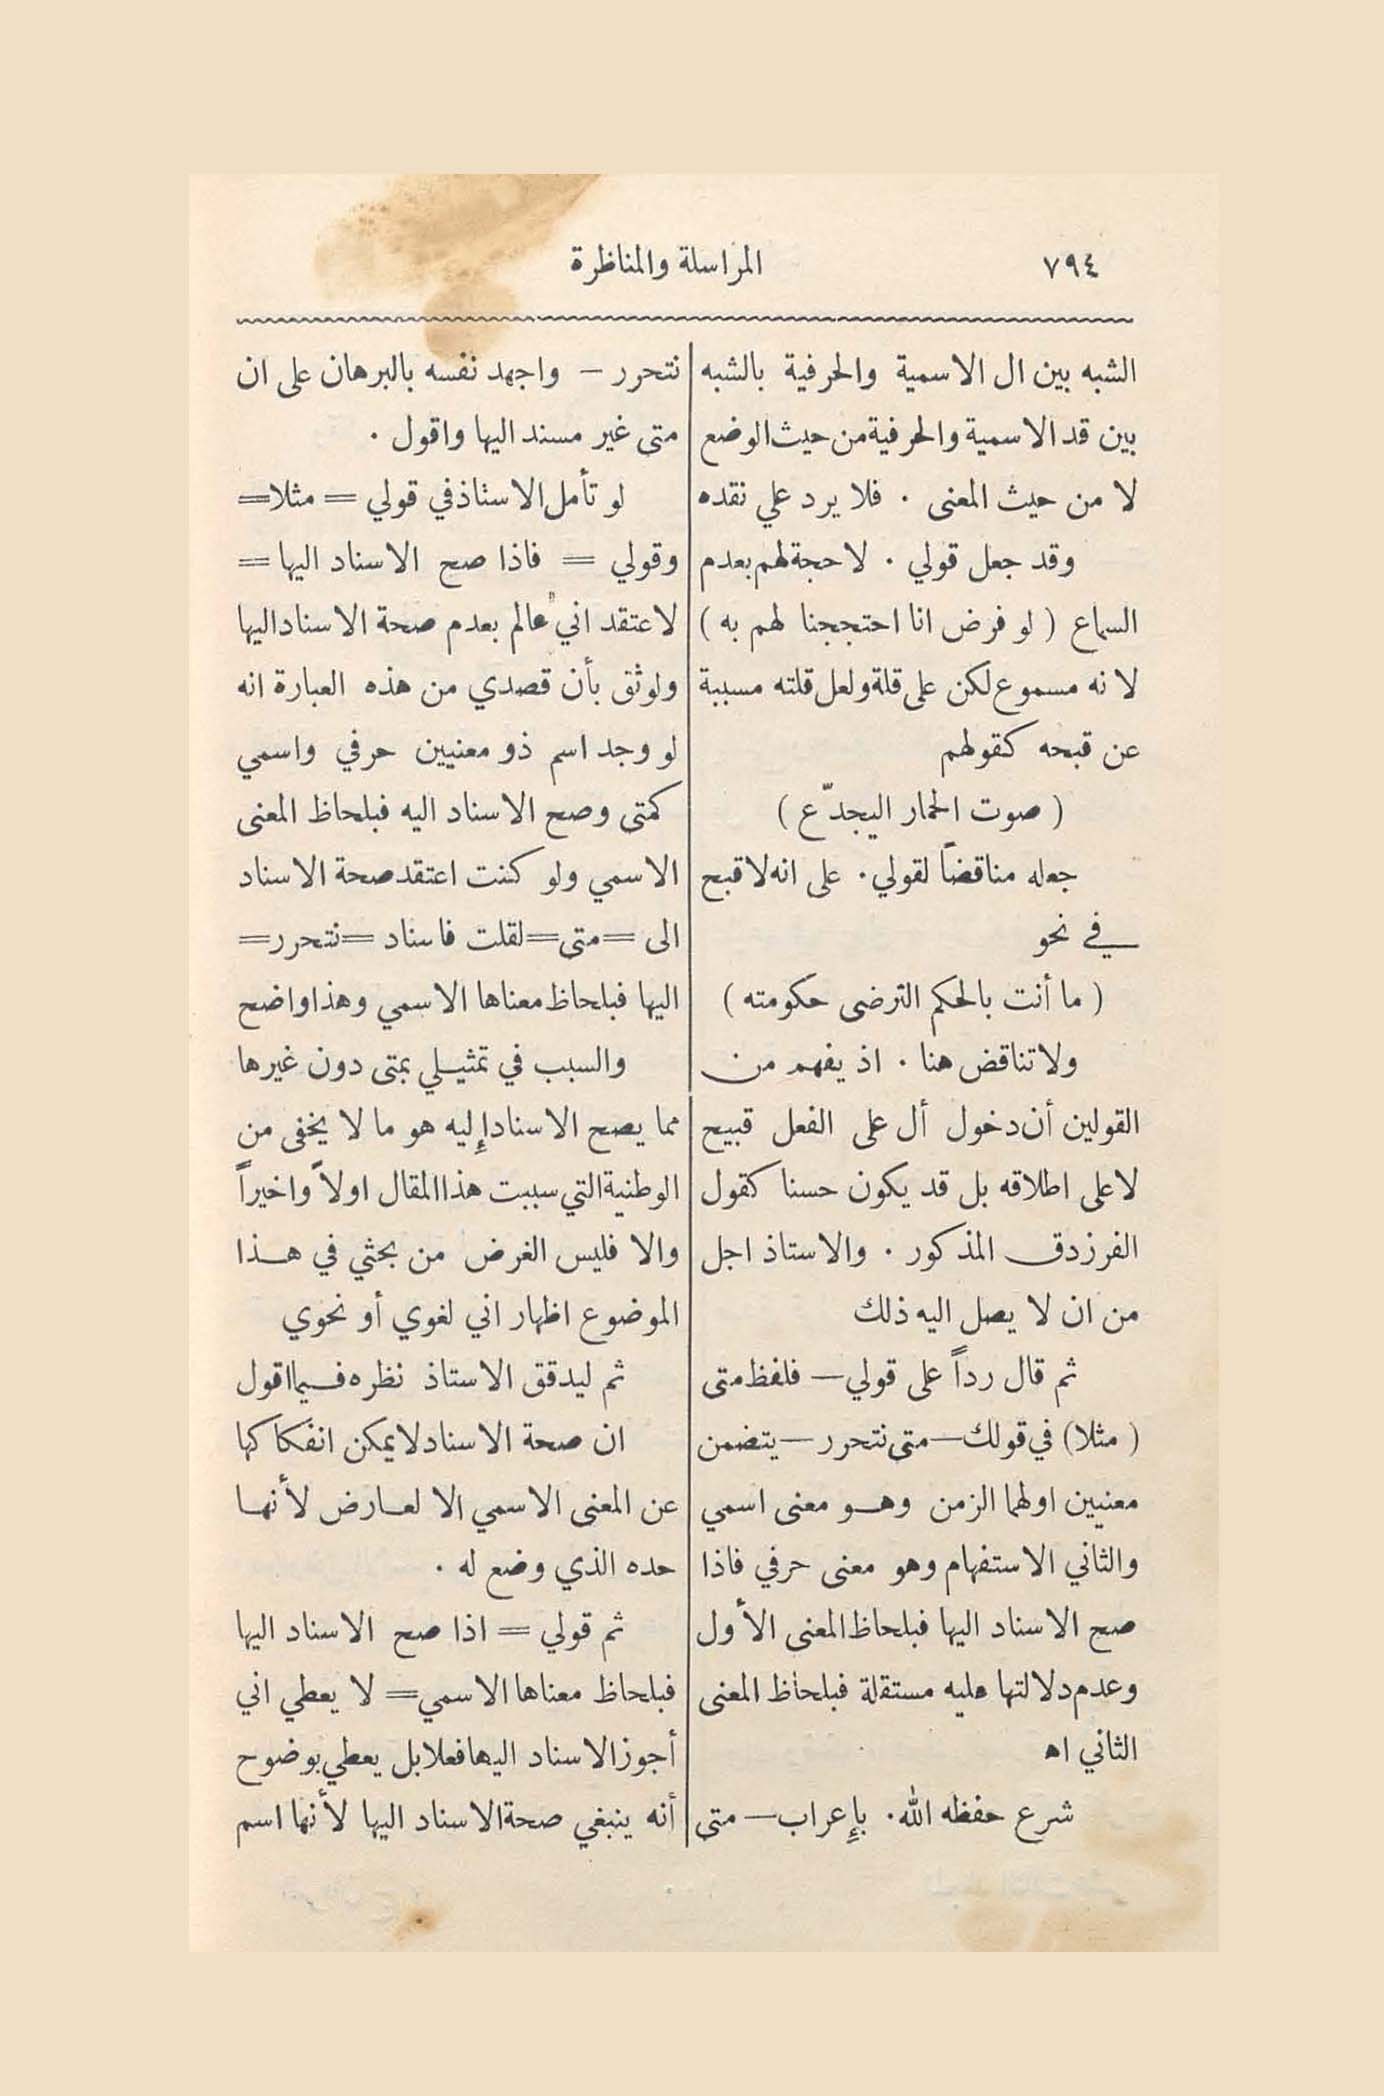 ٧٩٤
المراسلة والمناظرة
الشبه بين ال الاسمية والحرفية بالشبه
بين قد الاسمية والحرفية من حيث الوضع
لا من حيث المعنى . فلا يرد علي نقده
وقد جعل قولي . لا حجة لهم بعدم
السماع ( لو فرض انا احتججنا لهم به )
لانه مسموع لكن على قلة ولعل قلته مسببة
عن قبحه كقولهم
( صوت الحمار اليجدّع )
جعله مناقضاً لقولي . على انه لا قبح
في نحو
( ما أنت بالحكم الترضى حكومته )
ولا تناقض هنا . اذ يفهم من
القولين أن دخول أل على الفعل قبيح
لا على اطلاقه بل قد يكون حسنا كقول
الفرزدق المذكور . والاستاذ اجل
من ان لا يصل اليه ذلك
ثم قال رداً على قولي — فلفظ متى
( مثلا ) في قولك — متى نتحرر — يتضمن
معنيين اولهما الزمن وهو معنى اسمي
والثاني الاستفهام وهو معنى حرفي فاذا
صح الاسناد اليها فبلحاظ المعنى الأول
وعدم دلالتها عليه مستقلة فبلحاظ المعنى
الثاني اه
شرع حفظه الله . بإعراب — متى
نتحرر — واجهد نفسه بالبرهان على ان
متى غير مسند اليها واقول .
لو تأمل الاستاذ في قولي = مثلا =
وقولي = فاذا صح الاسناد اليها =
لاعتقد اني عالم بعدم صحة الاسناد اليها
ولوثق بأن قصدي من هذه العبارة انه
لو وجد اسم ذو معنيين حرفي واسمي
كمتى وصح الاسناد اليه فبلحاظ المعنى
الاسمي ولو كنت اعتقد صحة الاسناد
الى = متى = لقلت فاسناد = نتحرر =
اليها فبلحاظ معناها الاسمي وهذا واضح
والسبب في تمثيلي بمتى دون غيرها
مما يصح الاسناد إليه هو ما لا يخفى من
الوطنية التي سببت هذا المقال اولاً واخيراً
والا فليس الغرض من بحثي في هذا
الموضوع اظهار اني لغوي أو نحوي
ثم ليدقق الاستاذ نظره فيما اقول
ان صحة الاسناد لا يمكن انفكاكها
عن المعنى الاسمي الا لعارض لأنها
حده الذي وضع له .
ثم قولي = اذا صح الاسناد اليها
فبلحاظ معناها الاسمي = لا يعطي اني
أجوز الاسناد اليها فعلا بل يعطي بوضوح
أنه ينبغي صحة الاسناد اليها لأنها اسم